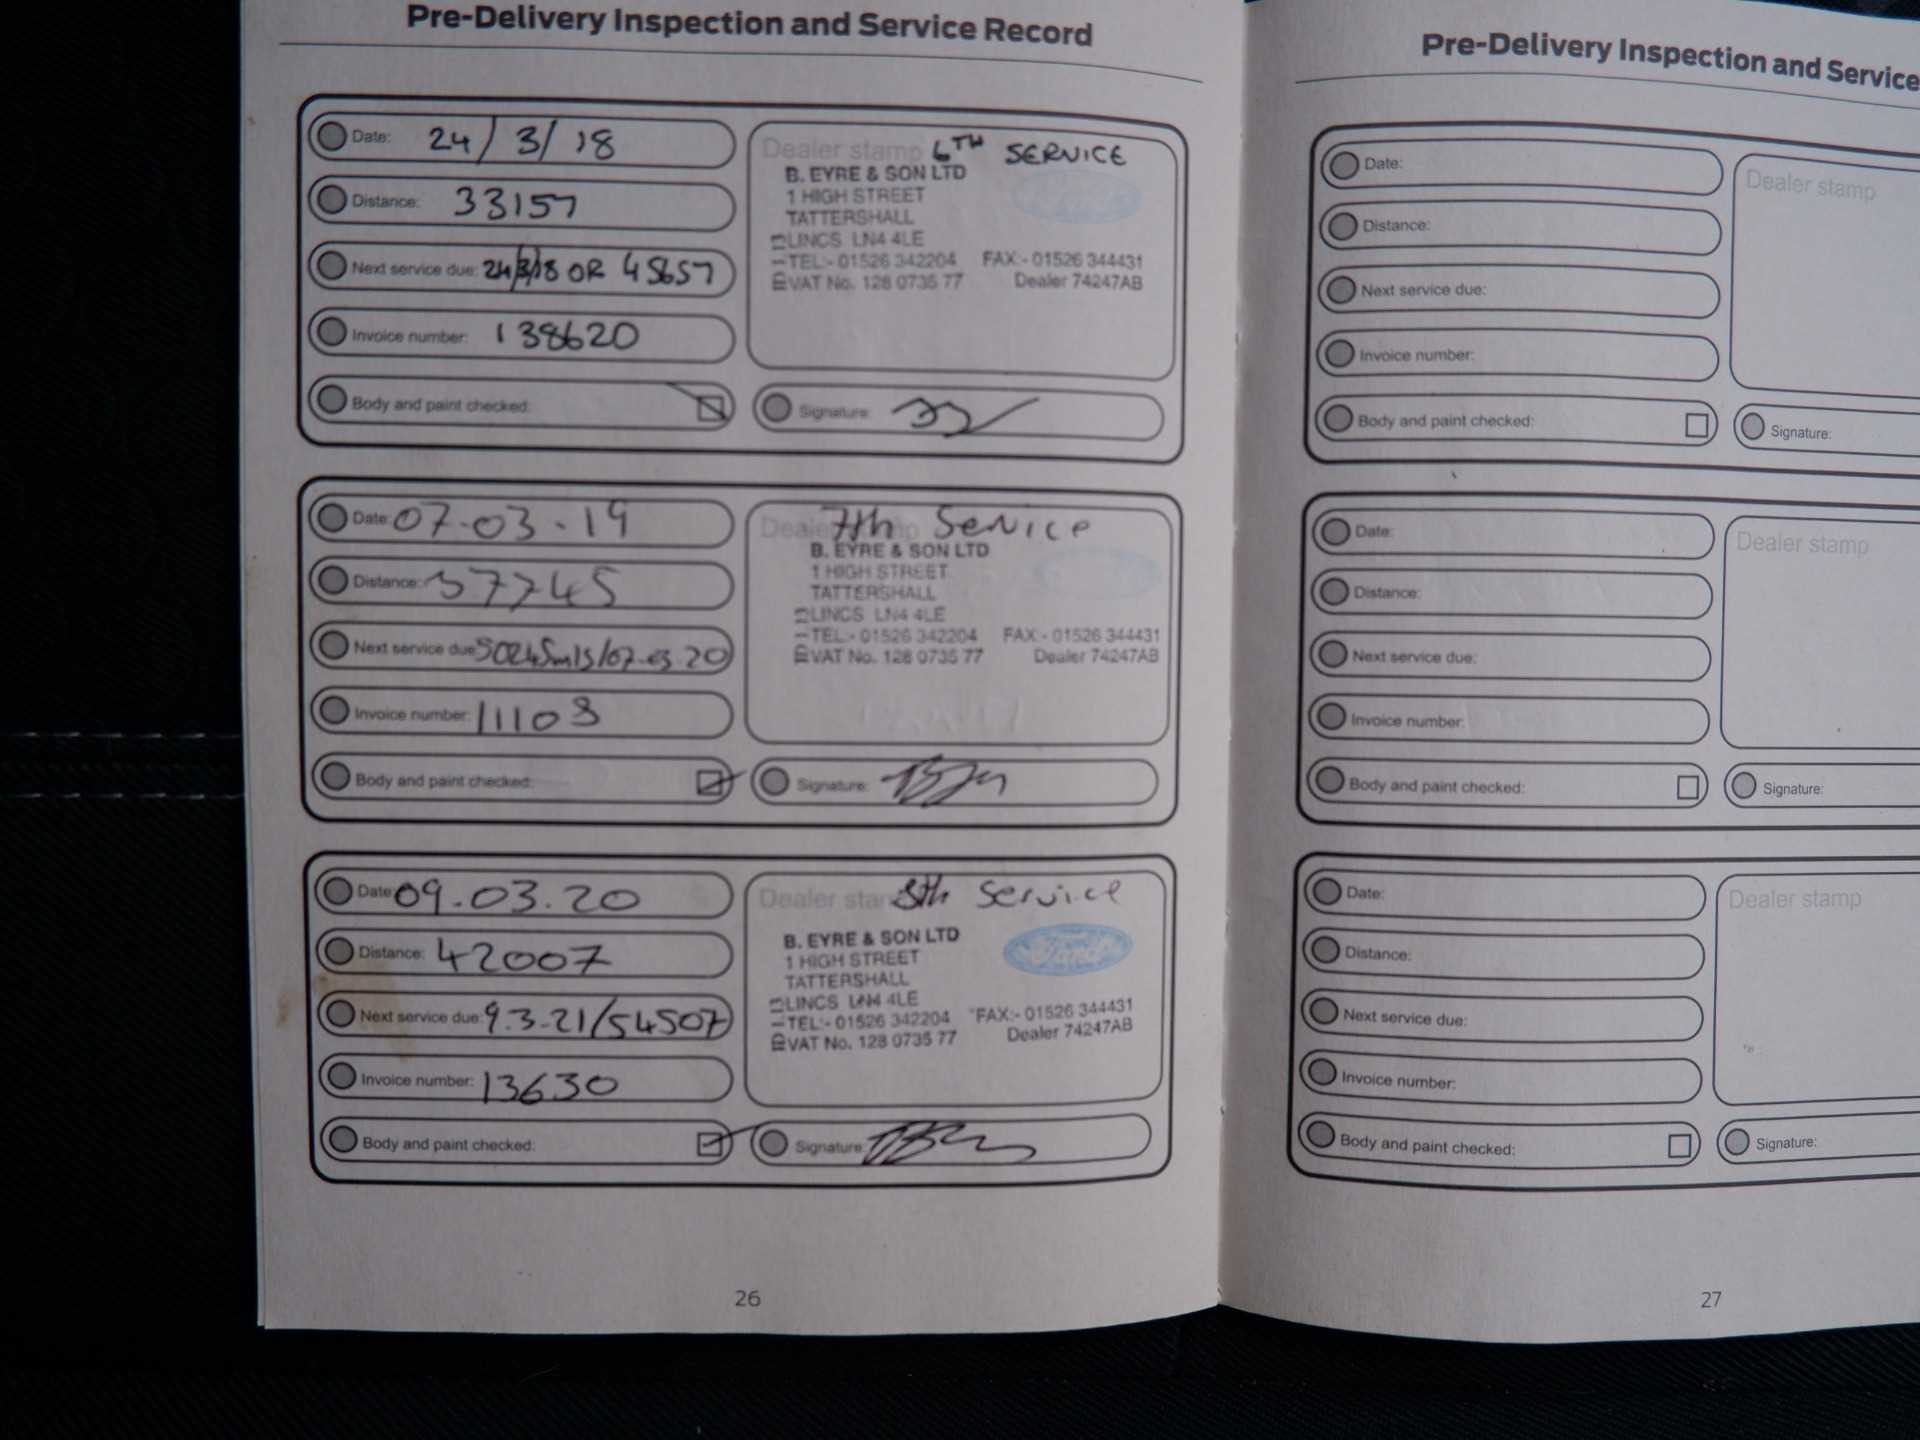 Pre-Delivery Inspection and Service Record
Date: 24/3/18
Distance: 33157
Next service due: 24/3/18 OR 45657
Invoice number: 138620
Body and paint checked:
Dealer stamp 6TH SERVICE
B. EYRE & SON LTD
1 HIGH STREET
TATTERSHALL
LINCS LN4 4LE
TEL:- 01526 342204 FAX:- 01526 344431
VAT No. 128 0735 77 Dealer 74247AB
Signature:
Date: 07.03.19
Distance: 37745
Next service due: 50245mls/07.03.20
Invoice number: 11108
Body and paint checked:
Dealer stamp 7th Service
B. EYRE & SON LTD
1 HIGH STREET
TATTERSHALL
LINCS LN4 4LE
TEL:- 01526 342204 FAX:- 01526 344431
VAT No. 128 0735 77 Dealer 74247AB
Signature:
Date: 09.03.20
Distance: 42007
Next service due: 9.3.21/54507
Invoice number: 13630
Body and paint checked:
Dealer stamp 8th Service
B. EYRE & SON LTD
Ford
1 HIGH STREET
TATTERSHALL
LINCS LN4 4LE
TEL:- 01526 342204 FAX:- 01526 344431
VAT No. 128 0735 77 Dealer 74247AB
Signature:
26
Pre-Delivery Inspection and Service
Date:
Distance:
Next service due:
Invoice number:
Body and paint checked:
Dealer stamp
Signature:
Date:
Distance:
Next service due:
Invoice number:
Body and paint checked:
Dealer stamp
Signature:
Date:
Distance:
Next service due:
Invoice number:
Body and paint checked:
Dealer stamp
Signature:
27